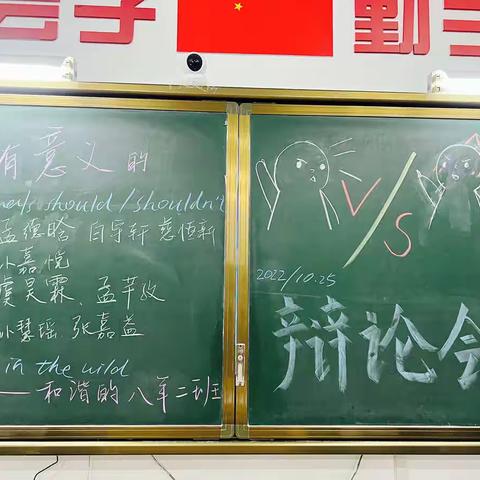 有意义的
should/shouldn't
孟德晗 自宇轩 慈恒新
嘉悦
虞昊霖、孟芊孜
慧瑶 张嘉益
in the wild
——和谐的八年二班
V/S
2022/10.25
辩论会